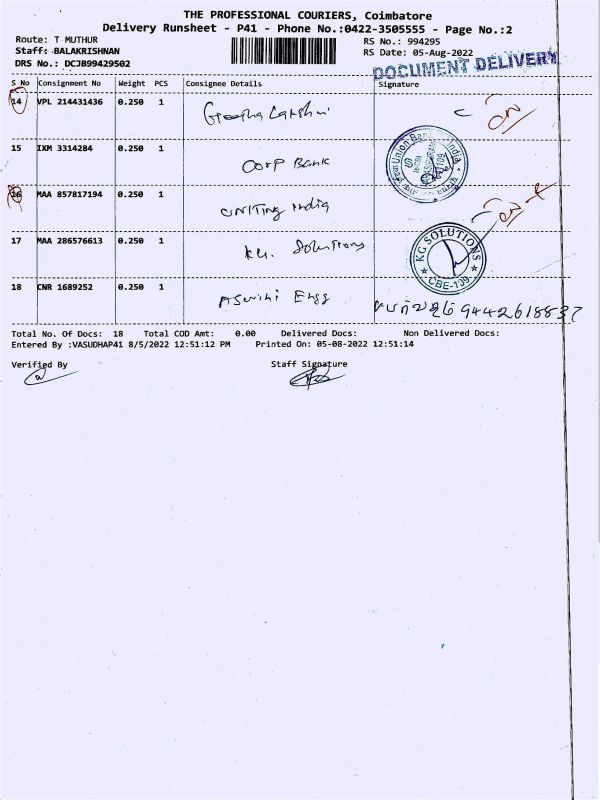 THE PROFESSIONAL COURIERS, Coimbatore
Delivery Runsheet - P41 - Phone No.:0422-3505555 - Page No.:2
Route: T MUTHUR
RS No.: 994295
Staff: BALAKRISHNAN
RS Date: 05-Aug-2022
DRS No.: DCJB99429502
DOCUMENT DELIVERY
S No Consignment No Weight PCS Consignee Details Signature
14 VPL 214431436 0.250 1 Geetha Lakshmi
15 IXM 3314284 0.250 1 Corp Bank
Union Bank India
16 MAA 857817194 0.250 1 Uniting India
17 MAA 286576613 0.250 1 KG. Solutions
KG SOLUTIONS
CBE-109
18 CNR 1689252 0.250 1 Aswini Engg 9442618837
Total No. Of Docs: 18 Total COD Amt: 0.00 Delivered Docs: Non Delivered Docs:
Entered By :VASUDHAP41 8/5/2022 12:51:12 PM Printed On: 05-08-2022 12:51:14
Verified By Staff Signature